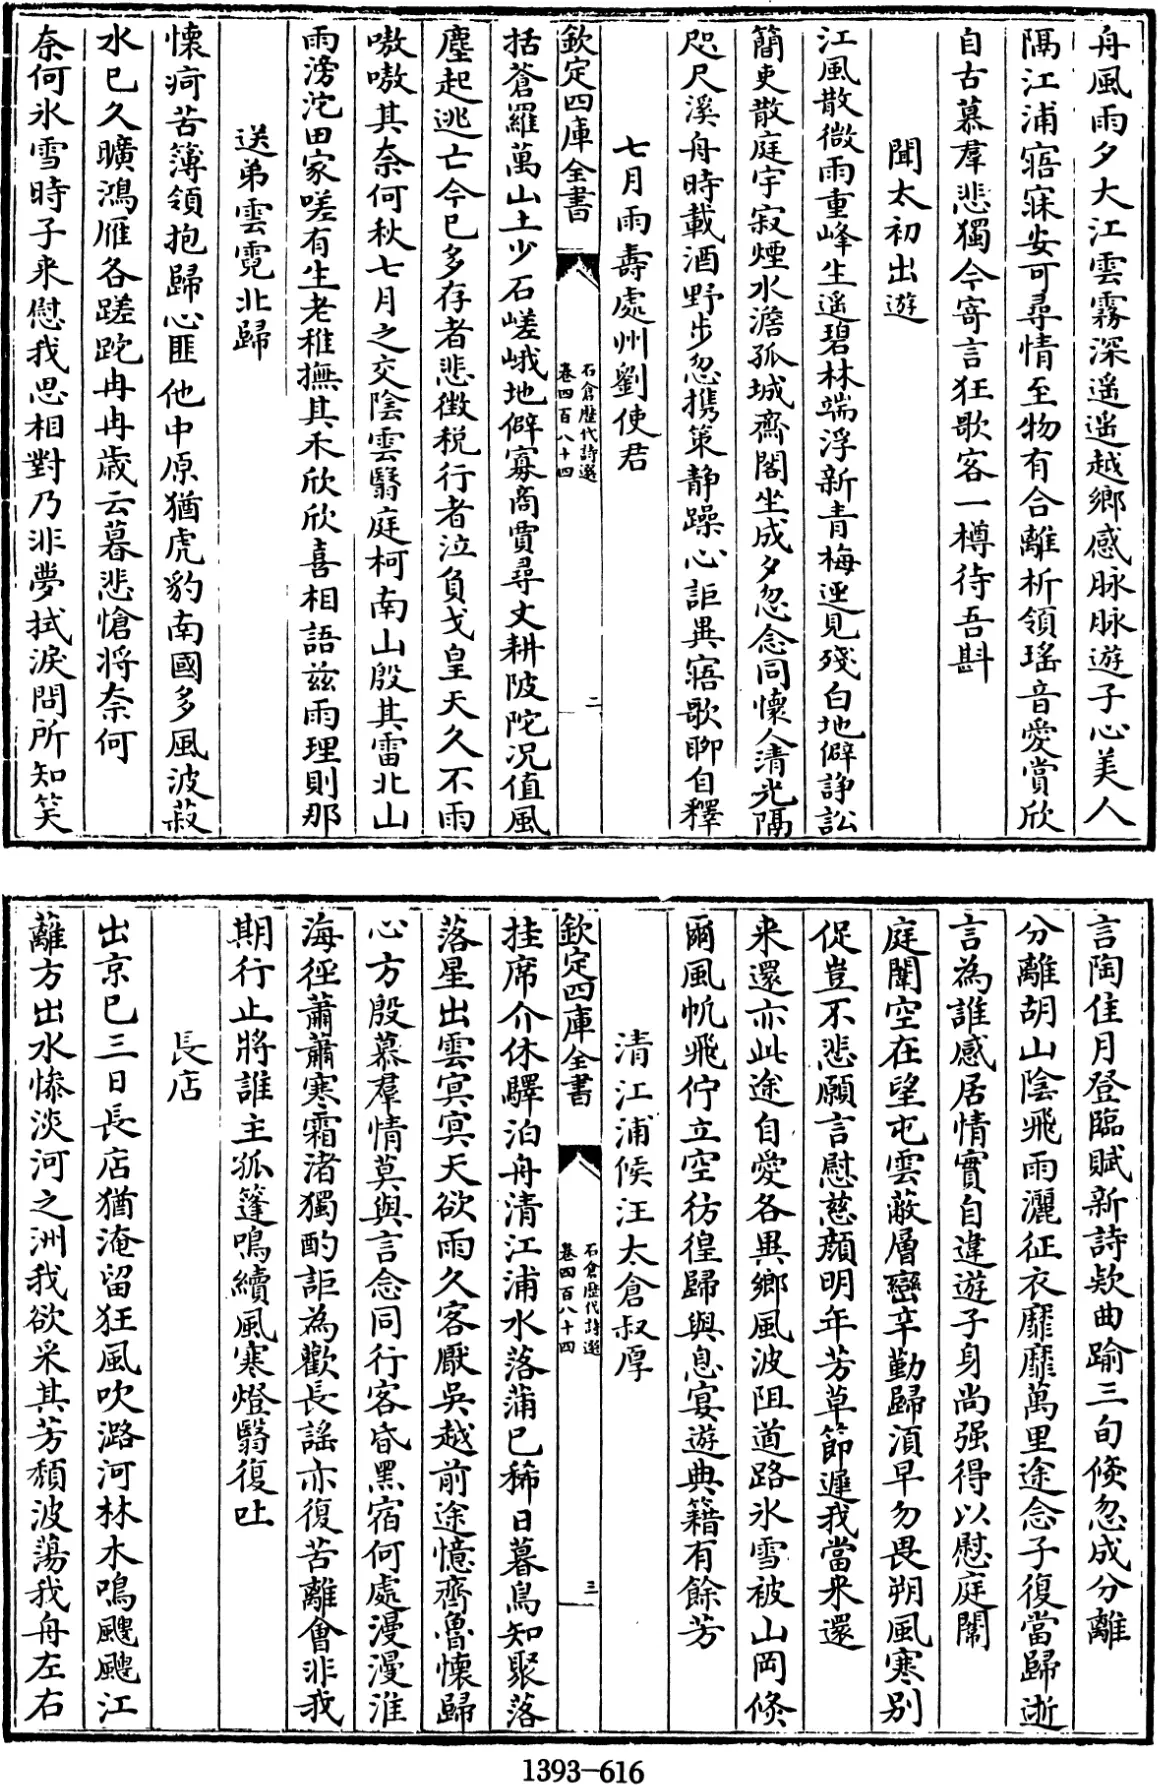 舟風雨夕大江雲霧深遥遥越鄉感脉脉遊子心美人
隅江浦寤寐安可尋情至物有合離析領瑤音愛賞欣
自古慕羣悲獨今寄言狂歌客一樽待吾斟
聞太初出遊
江風散微雨重峰生遥碧林端浮新青梅逕見殘白地僻諍訟
簡吏散庭宇寂煙水澹孤城齋閣坐成夕忽念同懷人清光隔
咫尺溪舟時載酒野步忽携策静躁心詎異寤歌聊自釋
七月雨壽處州劉使君
欽定四庫全書
石倉歷代詩選
卷四百八十四
二
括蒼羅萬山土少石嵯峨地僻寡商賈尋丈耕陂陀况值風
塵起逃亡今已多存者悲徴税行者泣負戈皇天久不雨
嗷嗷其奈何秋七月之交陰雲翳庭柯南山殷其雷北山
雨滂沱田家嗟有生老稚撫其禾欣欣喜相語兹雨理則那
送弟雲霓北歸
懷痾苦簿領抱歸心匪他中原猶虎豹南國多風波菽
水已久曠鴻雁各蹉跎冉冉歲云暮悲愴將奈何
奈何氷雪時子来慰我思相對乃非夢拭淚問所知笑
言陶佳月登臨賦新詩欵曲踰三旬倏忽成分離
分離胡山陰飛雨灑征衣靡靡萬里途念子復當歸逝
言為誰感居情實自違遊子身尚强得以慰庭闈
庭闈空在望屯雲蔽層巒辛勤歸湏早勿畏朔風寒别
促豈不悲願言慰慈顔明年芳草節遲我當来還
来還亦此途自愛各異鄉風波阻道路氷雪被山岡倏
爾風帆飛佇立空彷徨歸與息宴遊典籍有餘芳
清江浦候汪太倉叔厚
欽定四庫全書
石倉歷代詩選
卷四百八十四
三
挂席介休驛泊舟清江浦水落蒲已稀日暮鳥知聚落
落星出雲冥冥天欲雨久客厭吳越前途憶齊魯懷歸
心方殷慕羣情莫與言念同行客昏黑宿何處漫漫淮
海徑蕭蕭寒霜渚獨酌詎為歡長謡亦復苦離會非我
期行止將誰主孤篷鳴續風寒燈翳復吐
長店
出京已三日長店猶淹留狂風吹潞河林木鳴颼颼江
蘺方出水慘淡河之洲我欲采其芳頹波蕩我舟左右
1393-616